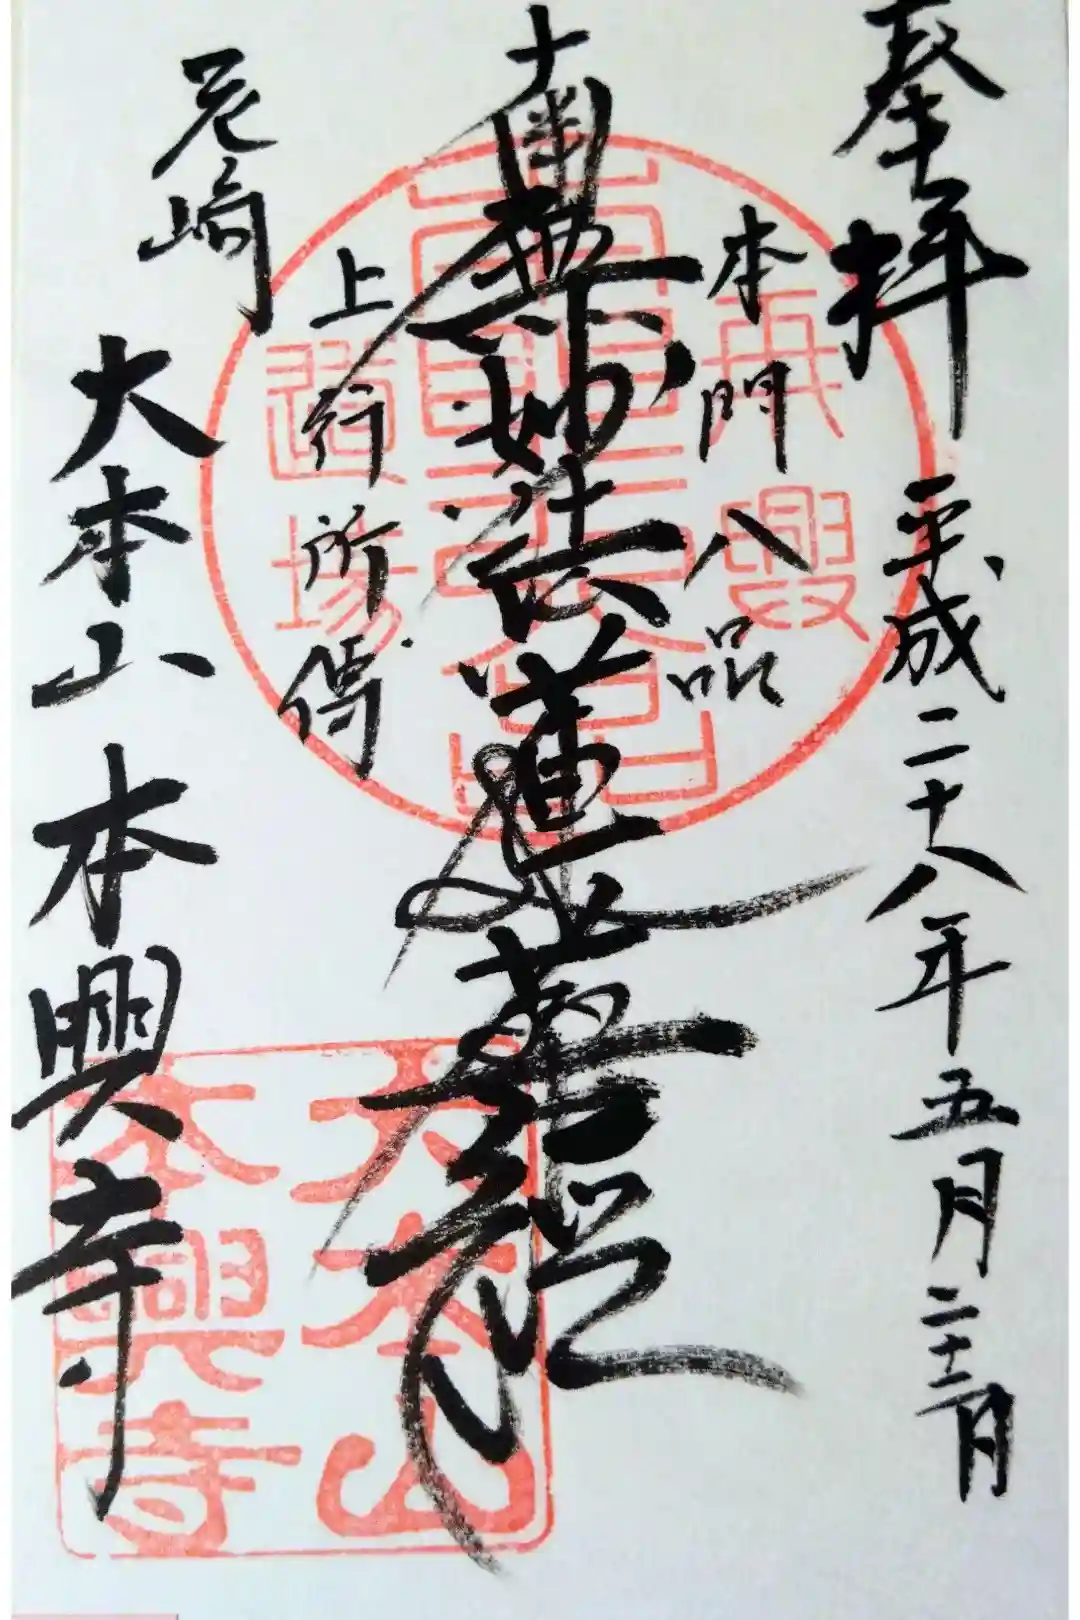 奉拝
平成二十八年五月二十二日
本門八品
南無妙法蓮華経
上行所傳
尼崎
大本山
本興寺
大本山
本興寺
道場